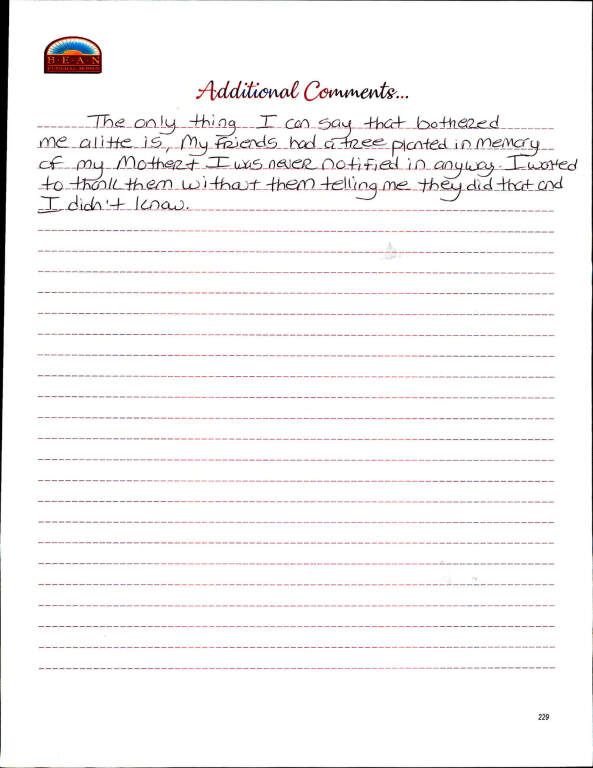 B·E·A·N
FUNERAL HOMES
Additional Comments...
The only thing I can say that bothered
me alitte is, My Friends had a tree planted in memory
of my Mother & I was never notified in anyway. I wanted
to thank them without them telling me they did that and
I didn't know.
229